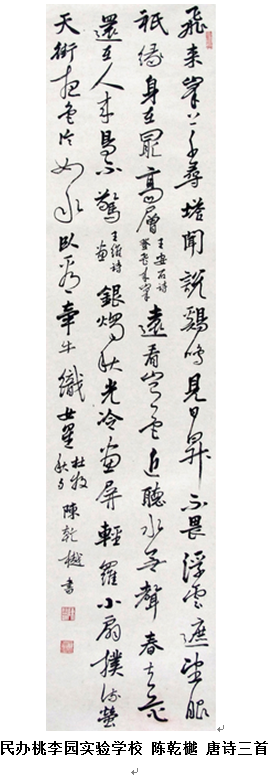 飛来峯上千尋塔聞說鷄鳴見日昇不畏浮雲遮望眼
衹緣身在最高層王安石詩登飛来峯遠看山有色近聽水無聲春去花
還在人来鳥不驚王維詩畫銀燭秋光冷畫屏輕羅小扇撲流螢
天街夜色凉如水臥看牽牛織女星杜牧秋夕陳乾樾書
民办桃李园实验学校 陈乾樾 唐诗三首